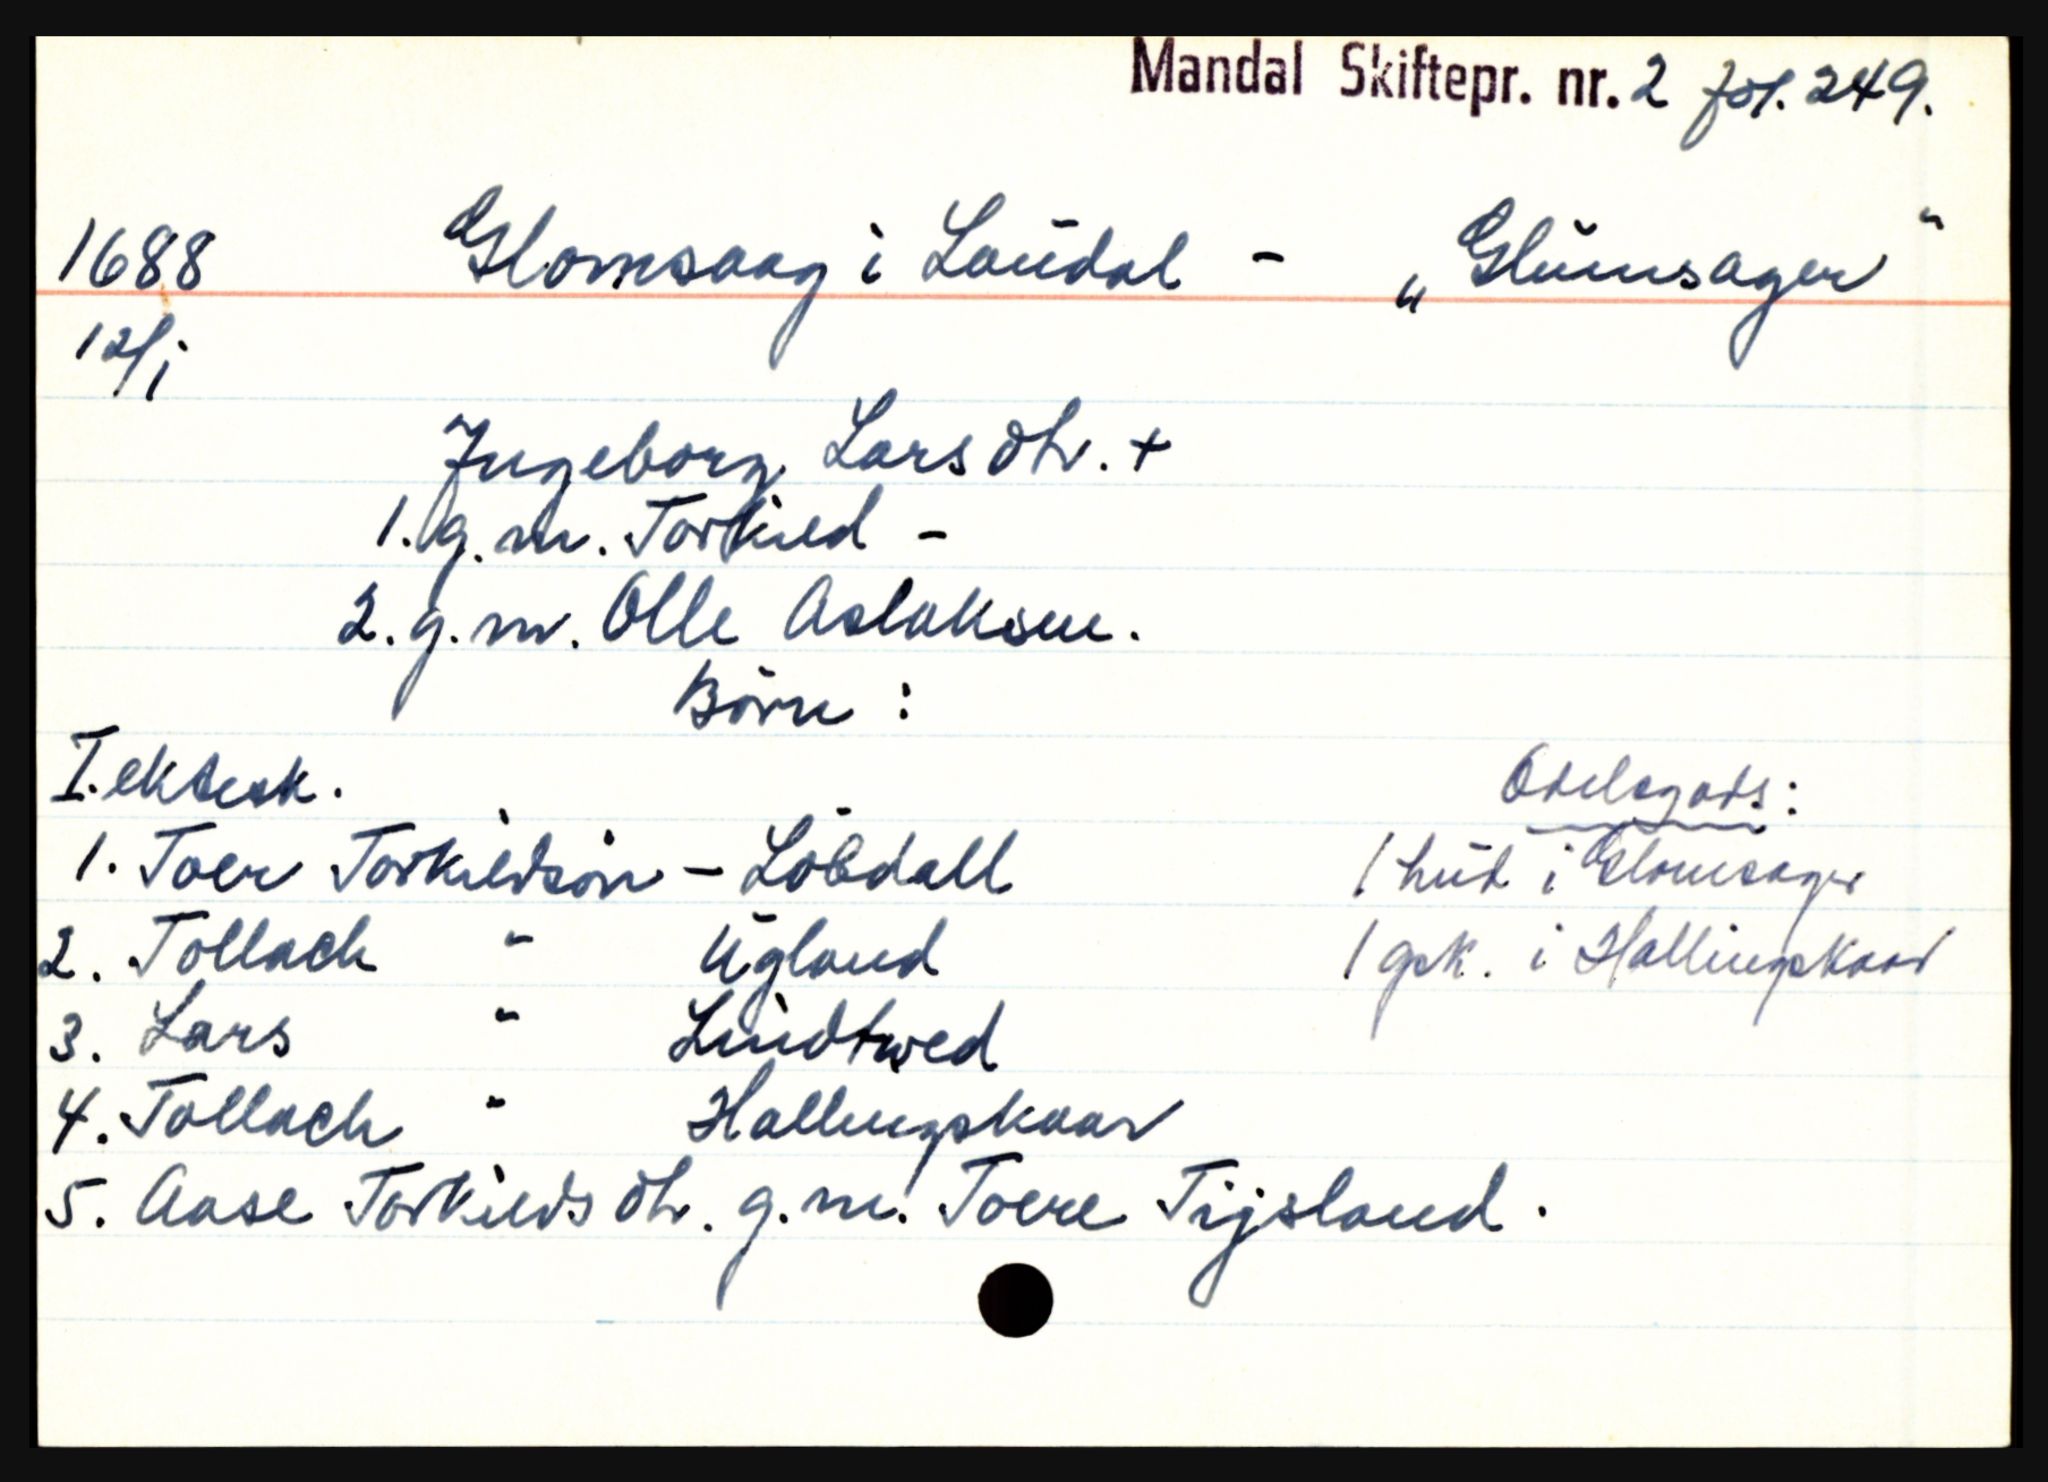 Mandal Skiftepr. nr. 2 fol. 249.
1688 Glomsaag i Laudal - „Glumsager"
12/1
Ingeborg Larsdtr. +
1. g.m. Torkild -
2. g.m. Olle Aslaksen.
Börn :
I. ektesk.
Odelsgods :
1. Toer Torkildsön - Löbdall
1 hud i Glomsager
2. Tollach " Ugland
1 gsk. i Hallingskaar
3. Lars " Lindtwed
4. Tollach " Hallingskaar
5. Aase Torkildsdtr. g.m. Toere Tijsland.